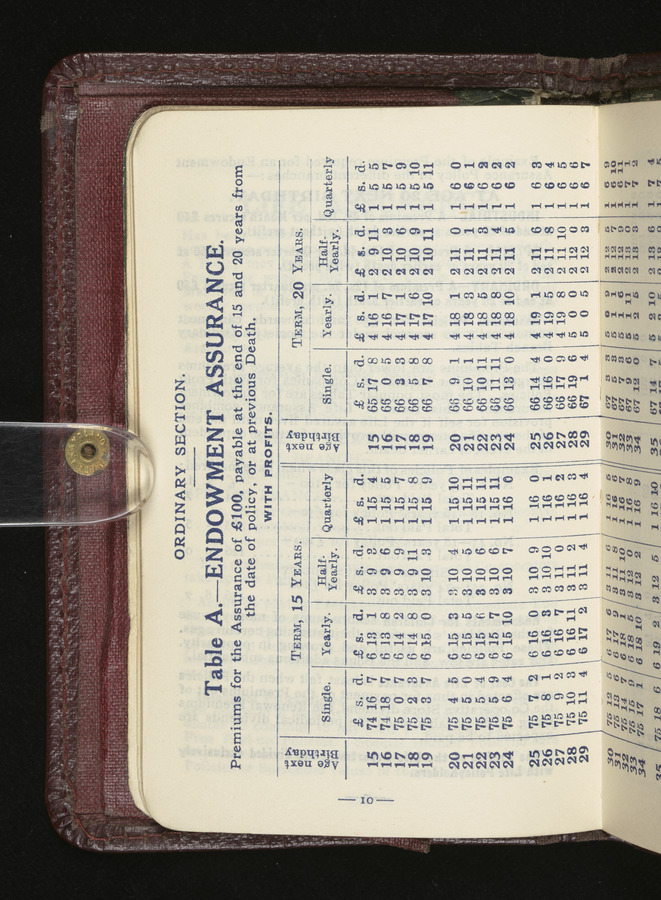 ORDINARY SECTION.
Table A.—ENDOWMENT ASSURANCE.
Premiums for the Assurance of £100, payable at the end of 15 and 20 years from
the date of policy, or at previous Death.
WITH PROFITS.
Age next Birthday TERM, 15 YEARS. Age next Birthday TERM, 20 YEARS.
Single. Yearly. Half-Yearly. Quarterly Single. Yearly. Half-Yearly. Quarterly
£ s. d. £ s. d. £ s. d. £ s. d. £ s. d. £ s. d. £ s. d. £ s. d.
15 74 16 7 6 13 1 3 9 3 1 15 4 15 65 17 8 4 16 1 2 9 11 1 5 5
16 74 18 7 6 13 8 3 9 6 1 15 5 16 66 0 5 4 16 7 2 10 3 1 5 7
17 75 0 7 6 14 2 3 9 9 1 15 7 17 66 3 3 4 17 1 2 10 6 1 5 9
18 75 2 3 6 14 8 3 9 11 1 15 8 18 66 5 8 4 17 6 2 10 9 1 5 10
19 75 3 7 6 15 0 3 10 3 1 15 9 19 66 7 8 4 17 10 2 10 11 1 5 11
20 75 4 5 6 15 3 3 10 4 1 15 10 20 66 9 1 4 18 1 2 11 0 1 6 0
21 75 5 0 6 15 5 3 10 5 1 15 11 21 66 10 1 4 18 3 2 11 1 1 6 1
22 75 5 4 6 15 6 3 10 6 1 15 11 22 66 10 11 4 18 5 2 11 3 1 6 2
23 75 5 9 6 15 7 3 10 6 1 15 11 23 66 11 11 4 18 8 2 11 4 1 6 2
24 75 6 4 6 15 10 3 10 7 1 16 0 24 66 13 0 4 18 10 2 11 5 1 6 2
25 75 7 2 6 16 0 3 10 9 1 16 0 25 66 14 4 4 19 1 2 11 6 1 6 3
26 75 8 1 6 16 3 3 10 10 1 16 1 26 66 16 0 4 19 5 2 11 8 1 6 4
27 75 9 2 6 16 7 3 11 0 1 16 2 27 66 17 9 4 19 8 2 11 10 1 6 5
28 75 10 3 6 16 11 3 11 2 1 16 3 28 66 19 6 5 0 0 2 12 0 1 6 6
29 75 11 4 6 17 2 3 11 4 1 16 4 29 67 1 4 5 0 5 2 12 3 1 6 7
30 30
31 31
32 32
33 33
34 34
35 75 18 6 6 19 2 3 12 5 1 16 10 35 67 14 7 5 2 10 2 13 6 1 7 4
— 10 —